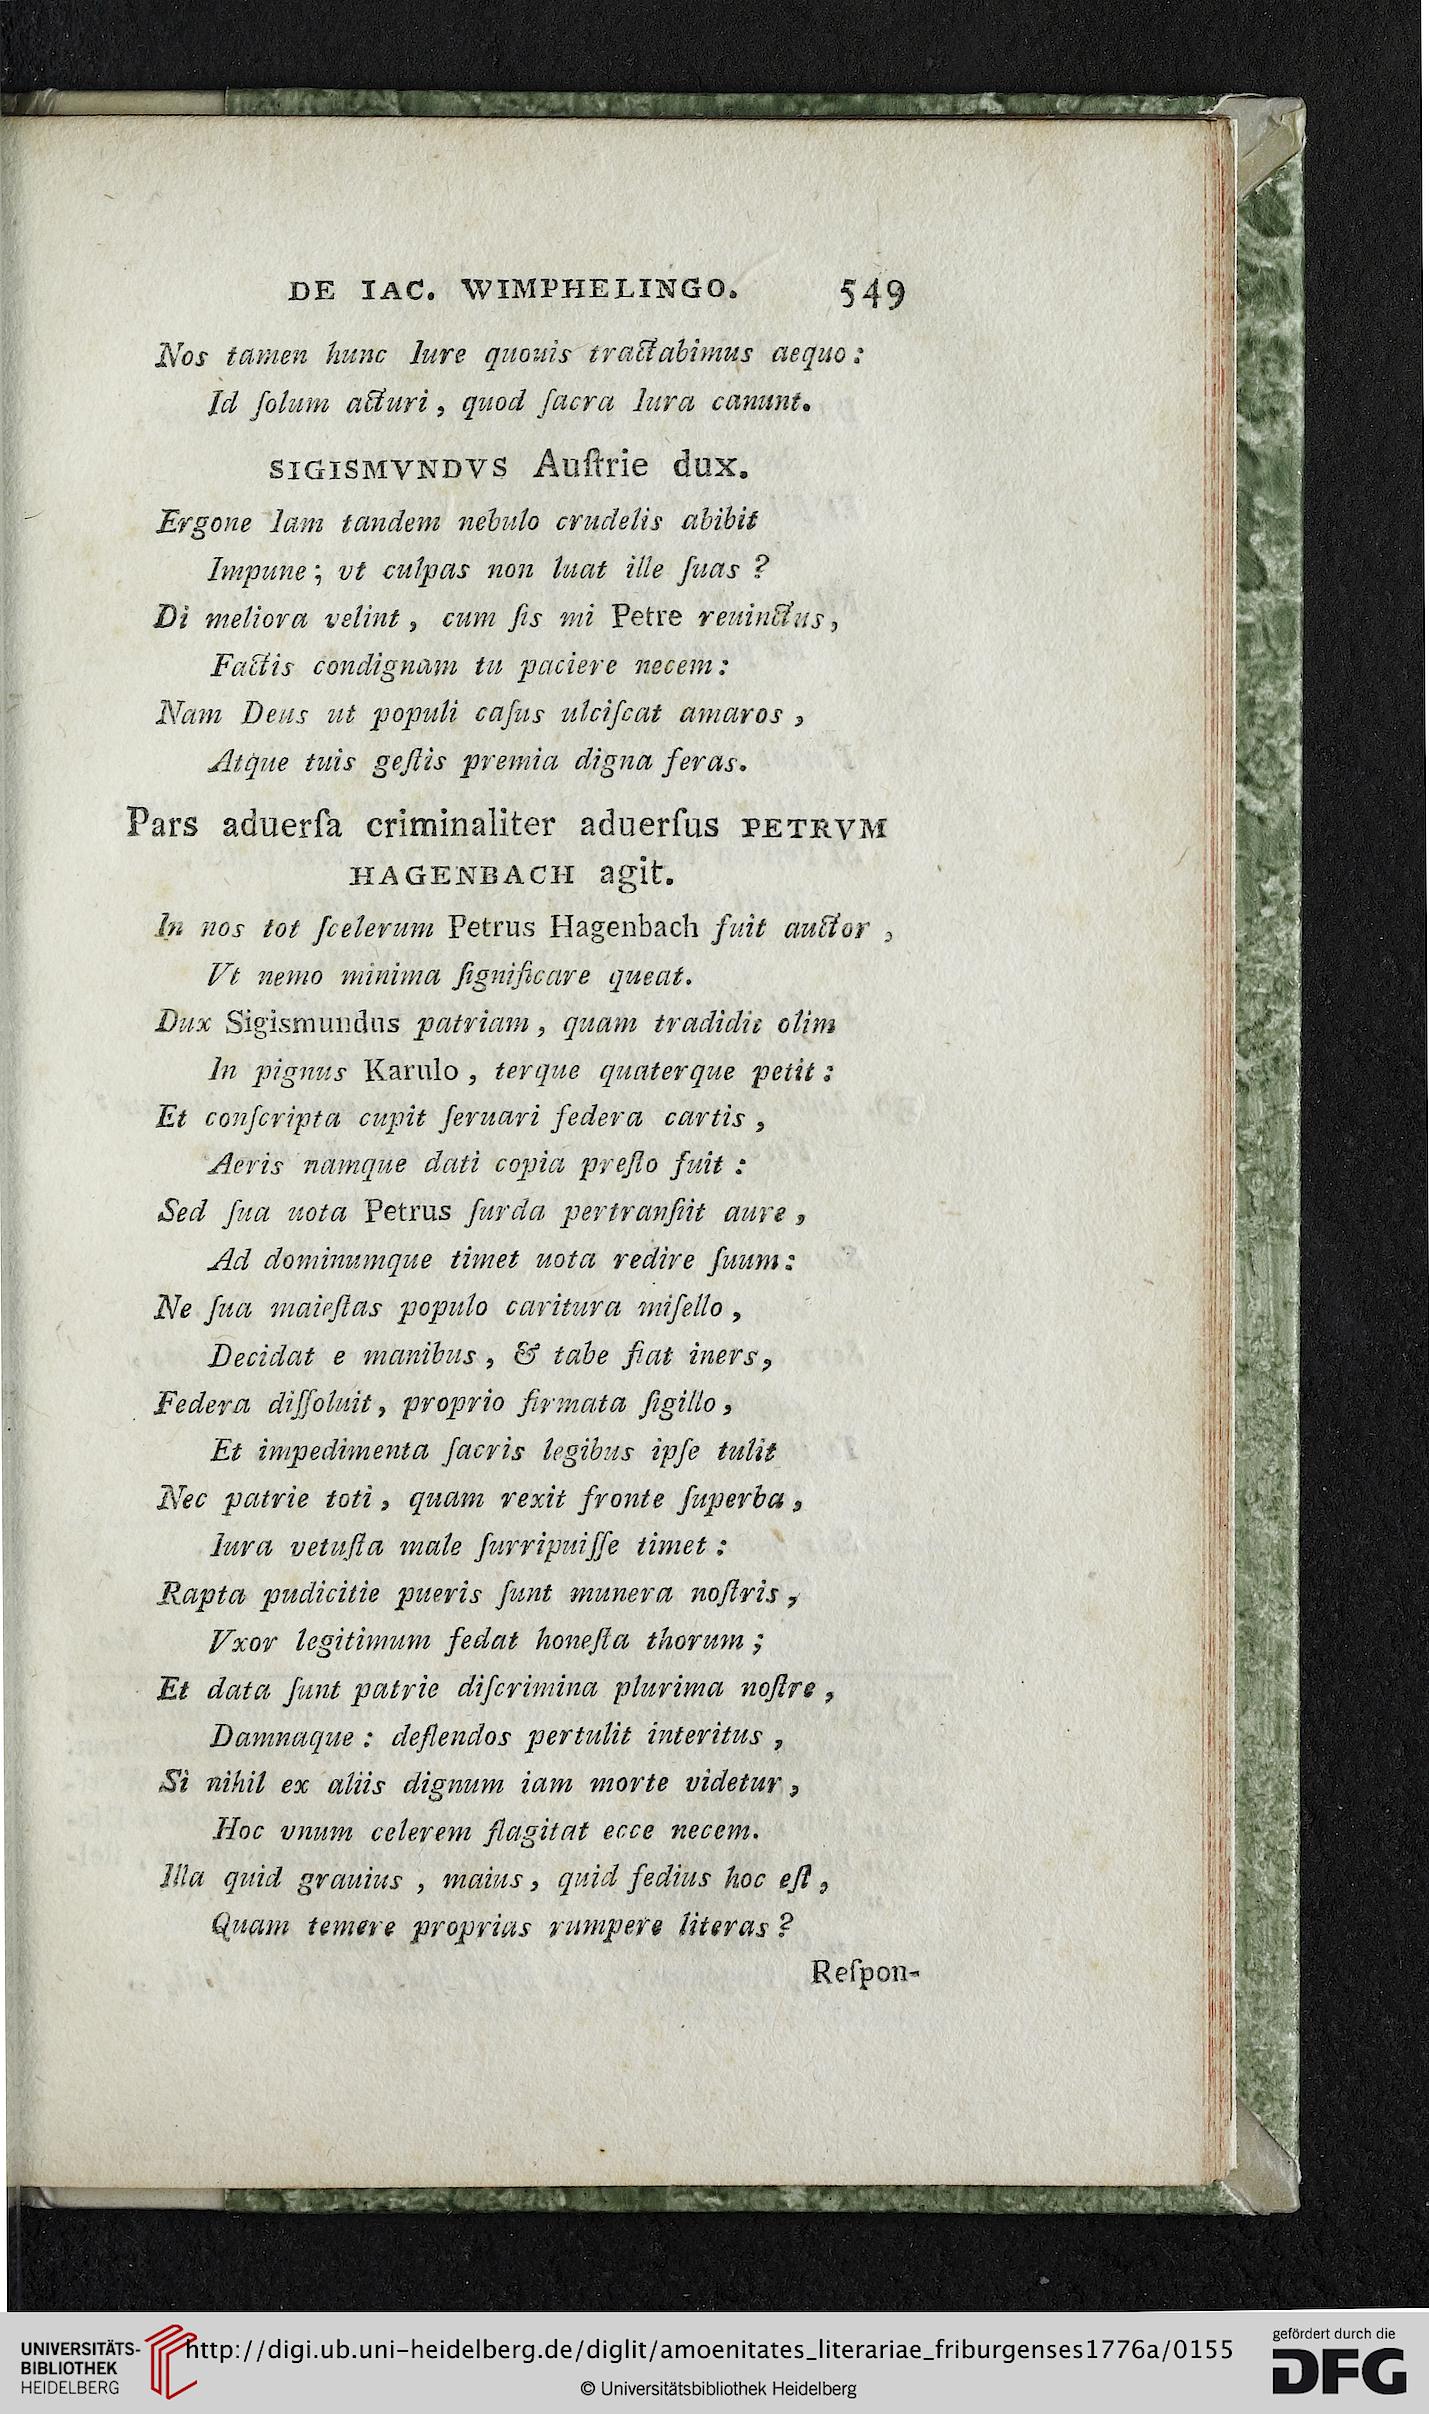 DE IAC. WIMPHELINGO. 549
Nos tamen hunc Iure quouis tractabimus aequo:
Id ſolum acturi, quod ſacra Iura canunt.
SIGISMVNDVS Auſtrie dux.
Ergone Iam tandem nebulo crudelis abibit
Impune; vt culpas non luat ille ſuas?
Di meliora velint, cum ſis mi Petre reuinctus,
Factis condignam tu paciere necem:
Nam Deus ut populi caſus ulciſcat amaros,
Atque tuis geſtis premia digna feras.
Pars aduerſa criminaliter aduerſus PETRVM
HAGENBACH agit.
In nos tot ſcelerum Petrus Hagenbach fuit auctor,
Vt nemo minima ſignificare queat.
Dux Sigismundus patriam, quam tradidit olim
In pignus Karulo, terque quaterque petit:
Et conſcripta cupit ſeruari federa cartis,
Aeris namque dati copia preſto fuit:
Sed ſua uota Petrus ſurda pertranſiit aure,
Ad dominumque timet uota redire ſuum:
Ne ſua maieſtas populo caritura miſello,
Decidat e manibus, & tabe fiat iners,
Federa diſſoluit, proprio firmata ſigillo,
Et impedimenta ſacris legibus ipſe tulit
Nec patrie toti, quam rexit fronte ſuperba,
Iura vetuſta male ſurripuiſſe timet:
Rapta pudicitie pueris ſunt munera noſtris,
Vxor legitimum fedat honeſta thorum;
Et data ſunt patrie diſcrimina plurima noſtre,
Damnaque: deflendos pertulit interitus,
Si nihil ex aliis dignum iam morte videtur,
Hoc vnum celerem flagitat ecce necem.
Illa quid grauius, maius, quid fedius hoc eſt,
Quam temere proprias rumpere literas?
Reſpon-
UNIVERSITÄTS-
BIBLIOTHEK
HEIDELBERG
http://digi.ub.uni-heidelberg.de/diglit/amoenitates_literariae_friburgenses1776a/0155
© Universitätsbibliothek Heidelberg
gefördert durch die
DFG